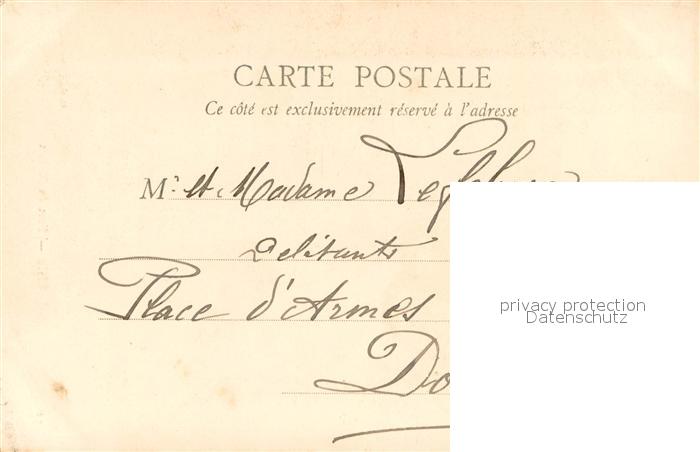 CARTE POSTALE
Ce côté est exclusivement réservé à l'adresse
Mr et Madame
Débitants
Place d'Armes
privacy protection
Datenschutz